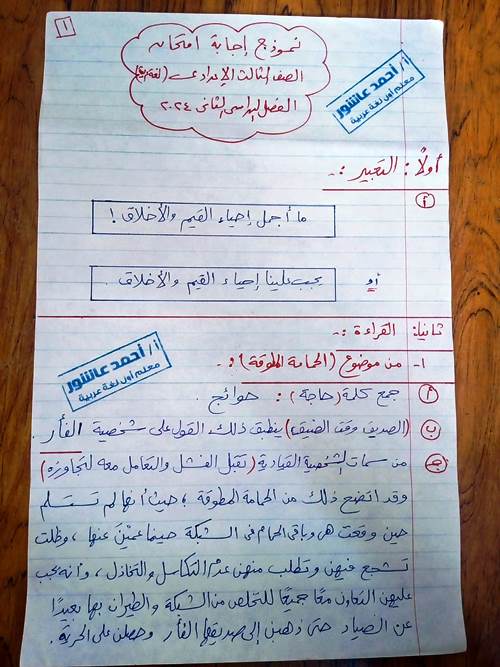 ١
نموذج إجابة امتحان
الصف الثالث الإعدادى (لغة عربية)
الفصل الدراسى الثانى ٢٠٢٤
أ/ أحمد عاشور
معلم أول لغة عربية
أولًا: التعبير :-
أ
ما أجمل إحياء القيم والأخلاق !
أو
يجب علينا إحياء القيم والأخلاق .
ثانيا: القراءة :-
أ/ أحمد عاشور
معلم أول لغة عربية
١- من موضوع (الحمامة المطوقة) :-
أ جمع كلمة (حاجة) : حوائج .
ب (الصديق وقت الضيق) ينطبق ذلك القول على شخصية الفأر .
جـ من سمات الشخصية القيادية (تقبل الفشل والتعامل معه لتجاوزه)
وقد اتضح ذلك من الحمامة المطوقة ؛ حيث أنها لم تستسلم
حين وقعت هى وباقى الحمام فى الشبكة حينما عمين عنها ، وظلت
تشجع فيهن وتطلب منهن عدم التكاسل والتخاذل ، وأنه يجب
عليهن التعاون معًا جميعًا للتخلص من الشبكة والطيران بها بعيدًا
عن الصياد حتى ذهبن إلى صديقها الفأر وحصلن على الحرية .